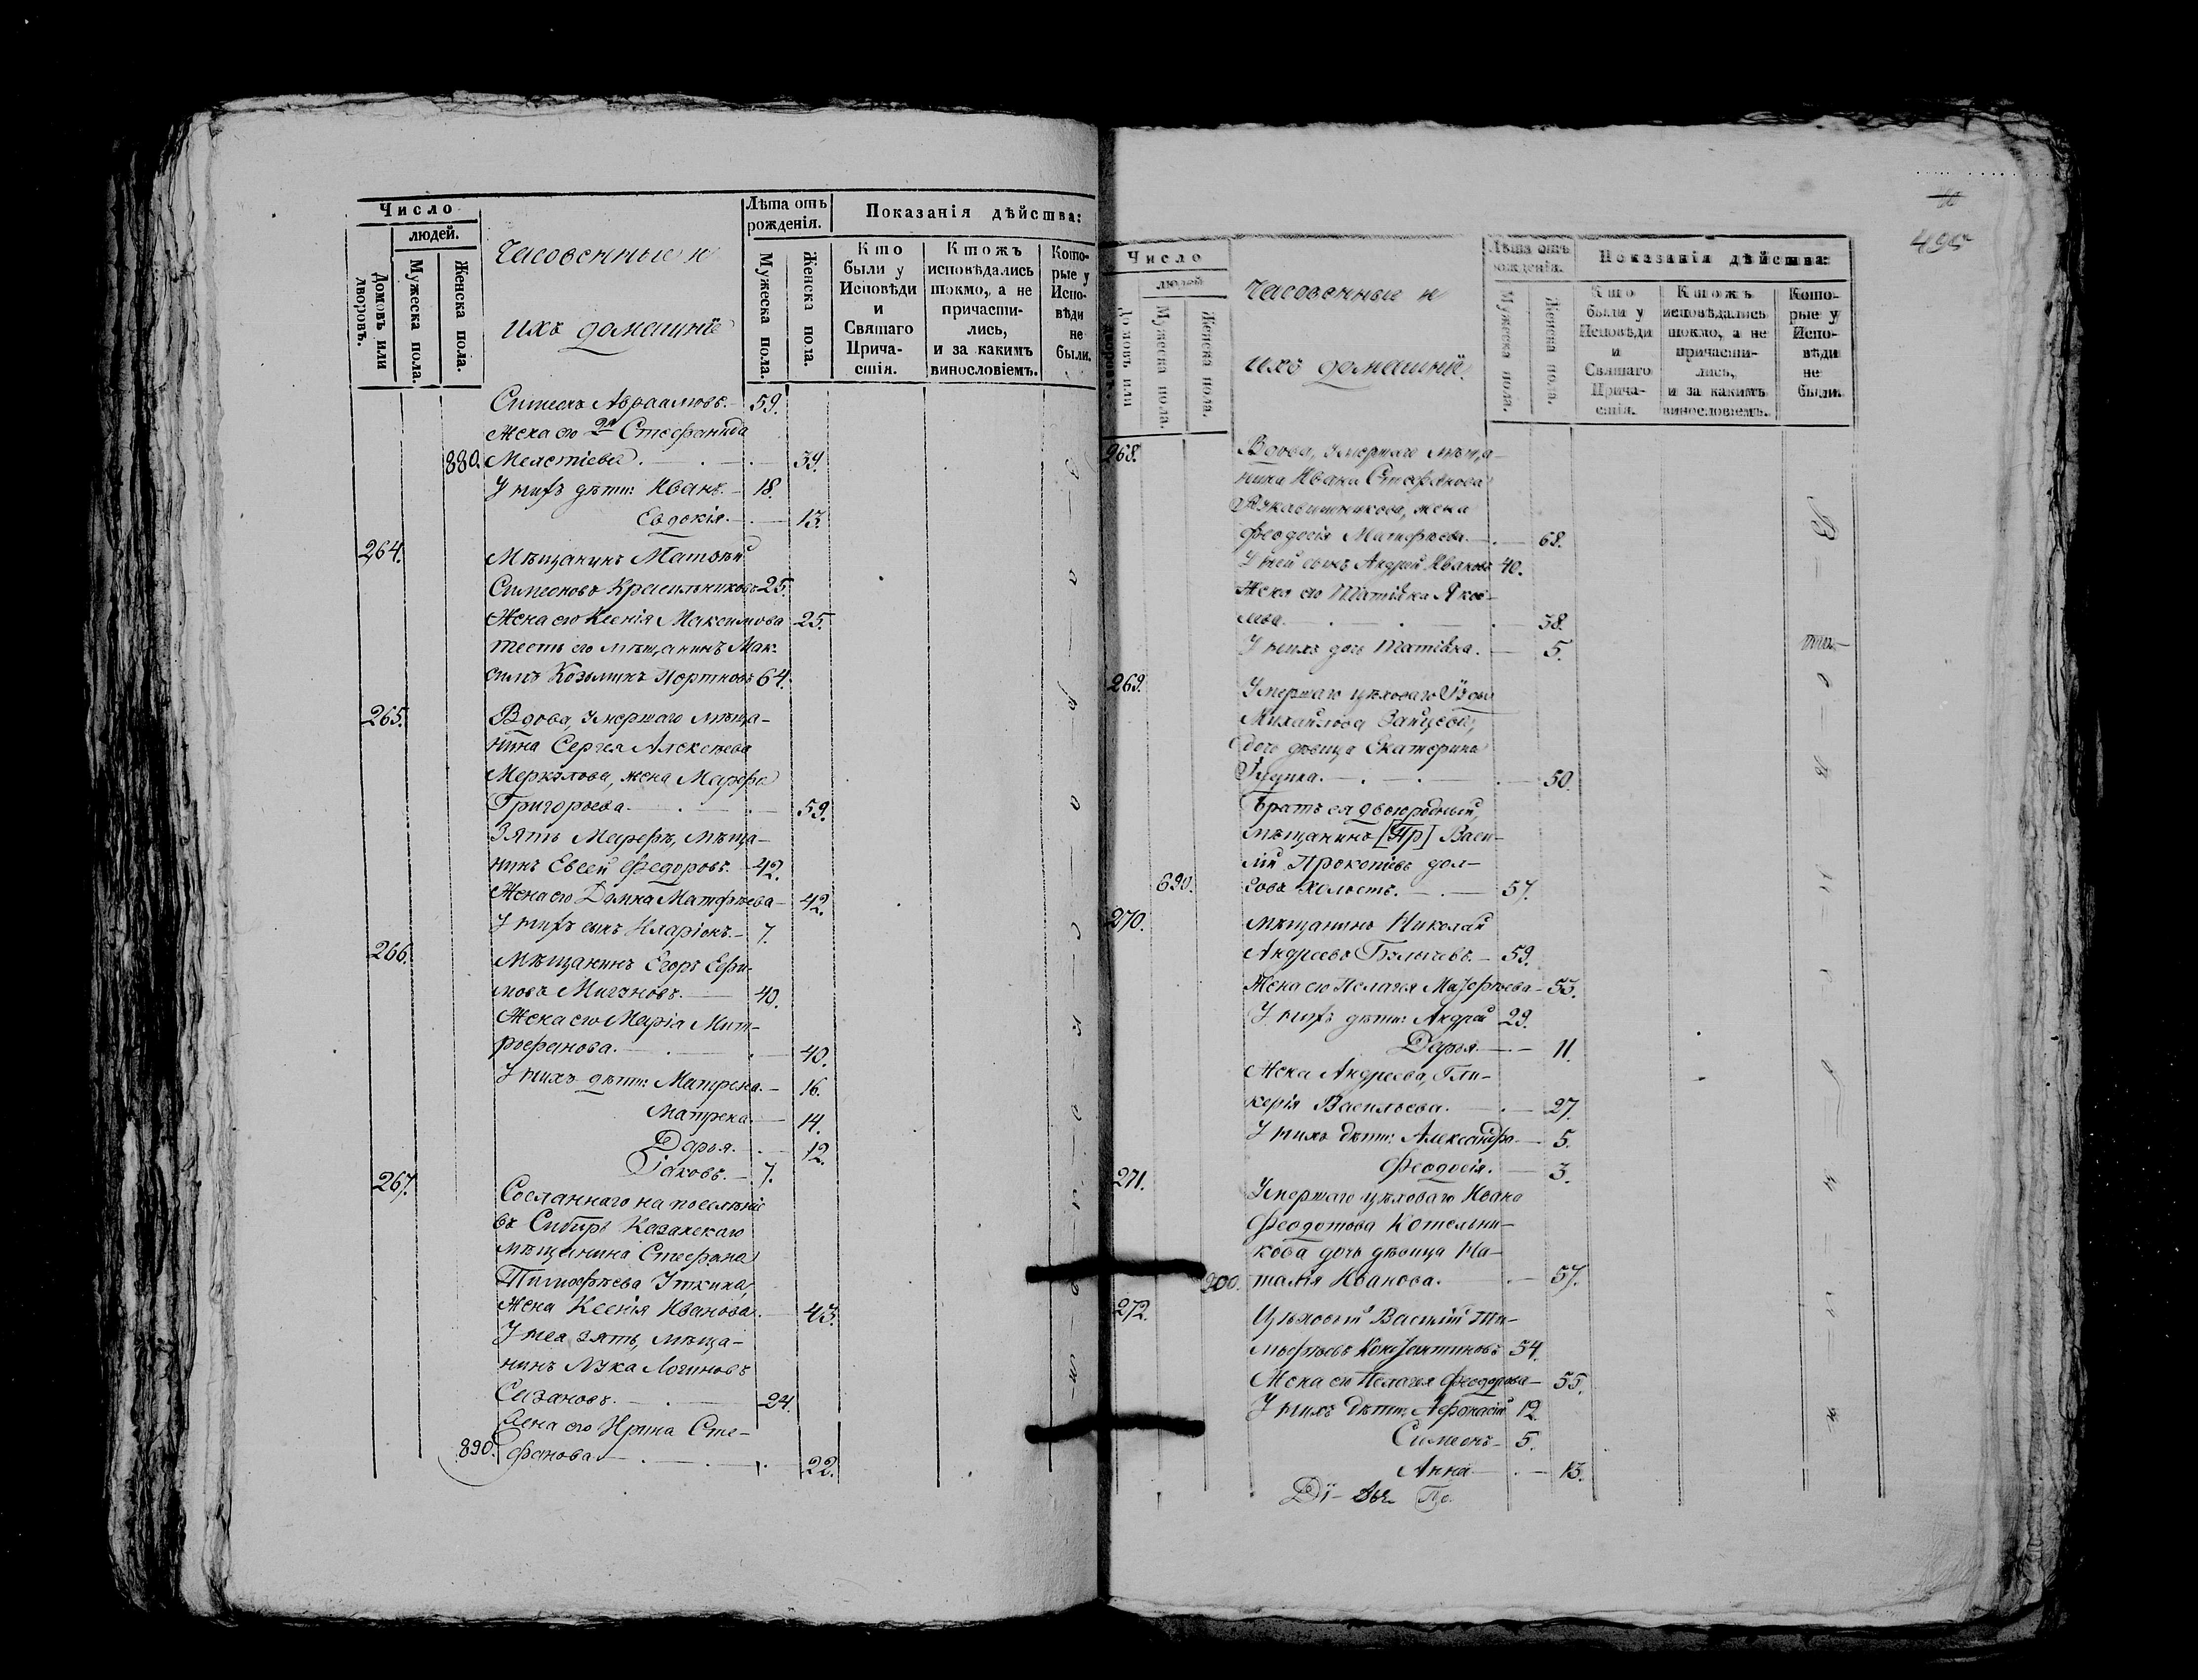 Число
людей.
Домовъ или дворовъ.
Мужеска пола.
Женска пола.
Часовенные и
ихъ домашніе
Лѣта отъ рожденія.
Мужеска пола.
Женска пола.
Показанія дѣйства:
Кто были у Исповѣди и Святаго Причастія.
Ктожъ исповѣдались токмо, а не причастились, и за какимъ винословіемъ.
Которые у Исповѣди не были.
Симеонъ Авраамовъ. 59.
Жена его 2я Стефанида
880. 39.
У нихъ дѣти: Иванъ. 18.
Евдокія. 13.
264. Мѣщанинъ Матвѣй
Симеоновъ Красильниковъ 25.
Жена его Ксенія Максимова 25.
Тесть его мѣщанинъ Мак-
симъ Козьминъ Портновъ 64.
265. Вдова, умершаго мѣща-
нина Сергея Алексѣева
Меркулова, жена Марфа
Григорьева. 59.
Зять Марфѣ, мѣща-
нинъ Евсей Федоровъ. 42.
Жена его Домна Матфѣева 42.
У нихъ сынъ Иларіонъ. 7.
266. Мѣщанинъ Егоръ Ефи-
мовъ Мигуновъ. 40.
Жена его Марія Мит-
рофанова. 40.
У нихъ дѣти: Матрена. 16.
Матрена. 14.
Дарья. 12.
Іаковъ. 7.
267. Сосланнаго на поселеніе
въ Сибирь Казанскаго
мѣщанина Стефана
Тимофѣева Уткина,
жена Ксенія Иванова. 43.
У нея зять, мѣща-
нинъ Лука Логиновъ
Сизановъ. 24.
Жена его Ирина Сте-
890. фанова 22.
495
Число
людей
Домовъ или дворовъ.
Мужеска пола.
Женска пола.
Часовенные и
ихъ домашніе.
Лѣта отъ рожденія.
Мужеска пола.
Женска пола.
Показанія дѣйства:
Кто были у Исповѣди и Святаго Причастія.
Ктожъ исповѣдались токмо, а не причастились, и за какимъ винословіемъ.
Которые у Исповѣди не были.
268. Вдова, умершаго мѣща-
нина Ивана Стефанова
Рукавишникова, жена
Феодосія Матфѣева. 68.
У ней сынъ Андрей Ивановъ 40.
Жена его Татіяна Яков-
лева. 38.
У нихъ дочь Татіяна. 5.
269. Умершаго цѣховаго
Михайлова Зайцова,
дочь дѣвица Екатерина
50.
Братъ ея двоюродный,
мѣщанинъ [Пр] Васи-
лій Прокопіевъ Дол-
690. говъ холостъ. 57.
270. Мѣщанинъ Николай
Андреевъ Булычевъ. 59.
Жена его Пелагея 53.
У нихъ дѣти: Андрей 29.
Дарья. 11.
Жена Андреева, Гли-
керія Васильева. 27.
У нихъ дѣти: Александра 5.
Феодосія. 3.
271. Умершаго цѣховаго Ивана
Феодотова Котельни-
кова дочь дѣвица На-
900. талія Иванова. 57.
272. Цѣховый Василій Ти-
мофѣевъ Константиновъ 54.
Жена его Пелагея Феодорова 55.
У нихъ дѣти: Афанасій 12.
Симеонъ 5.
Анна 13.